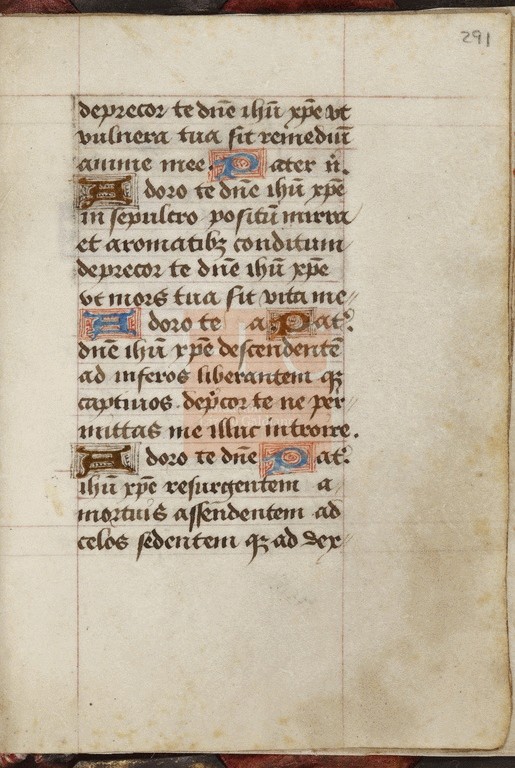 291
deprecor te dn̄e ihū xp̄e vt
vulnera tua sit remediū
anime mee. Pater n̄.
Adoro te dn̄e ihū xp̄e
in sepulcro positū mirra
et aromatibꝫ conditum
deprecor te dn̄e ihū xp̄e
vt mors tua sit vita me
Adoro te a. Pat᷒
dn̄e ihū xp̄e descendentē
ad inferos liberantem qꝫ
captiuos. dep̄cor te ne per
mittas me illuc introire.
Adoro te dn̄e Pat᷒
ihū xp̄e resurgentem a
mortuis assendentem ad
celos sedentem qꝫ ad dex